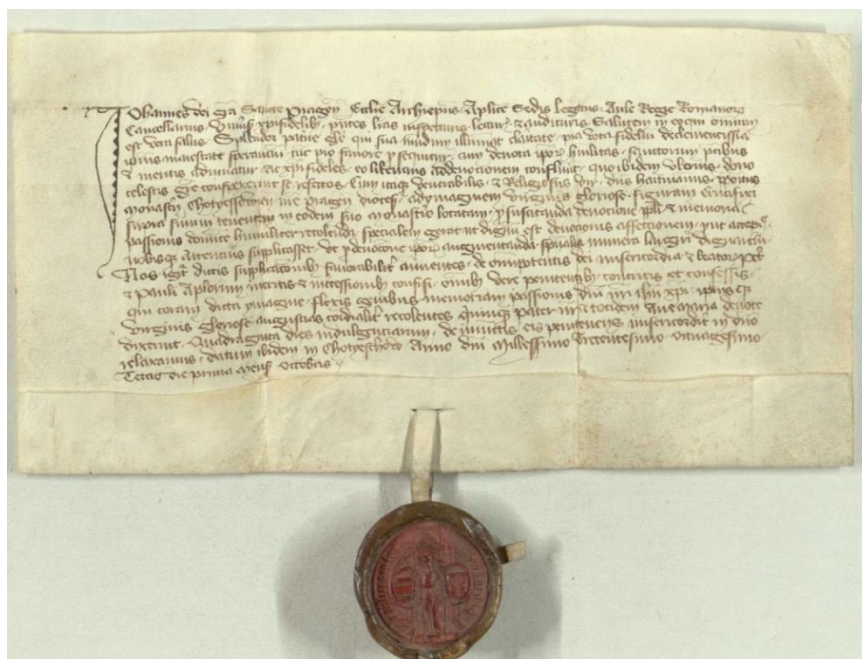 Johannes dei gra Sancte Pragen Ecclie Archiepus Aplice Sedis legatus Aule Regie Romanorum
Cancellarius Vniusis xpifidelibus pntes lras inspecturis lecturis & audituris Salutem in eo qui omnium
est vera salus Splendor paterne glie qui sua mundum illuminat claritate pia vota fidelium de clementissima
ipius maiestate sperancium tunc pio fauore psequitur cum deuota ipor humilitas sanctorum pcibus
& meritis adiuuatur ac xpifideles eo libencius ad deuocionem confluunt quo ibidem vberius dono
celestis gre conspexerint se refectos Cum itaque Venerabilis & Religiosus vir dns prepositus
monastery Chotyessouien nre Pragen dioces ad ymaginem virginis gloriose figuram Crucifixi
supra sinum tenentem in eodem suo monasterio locatam p suscitanda deuocione ppli & memoria
passionis dominice humiliter recolenda specialem gerat ut dignum est deuocionis affectionem
nobisque attencius supplicasset vt p deuocione ipor augmentanda spualia munera largiri dignaremur
Nos igitur dictis supplicacionibus fauorabiliter annuentes de omnipotentis dei misericordia & beatorum Petri
& Pauli Aplorum meritis & intcessionibus confisi omibus vere penitentibus contritis et confessis
qui coram dicta ymagine flexis genibus memoriam passionis dni nri ihu xpi ipius que
virginis gloriose angustias cordialiter recolentes quinque Pater nr & totidem Aue maria deuote
dixerint Quadraginta dies indulgenciarum de iniunctis eis penitencys misericorditer in dno
relaxamus datum ibidem in Chotyeschow Anno dni Millessimo Trecentesimo
Tercio die prima mens Octobris